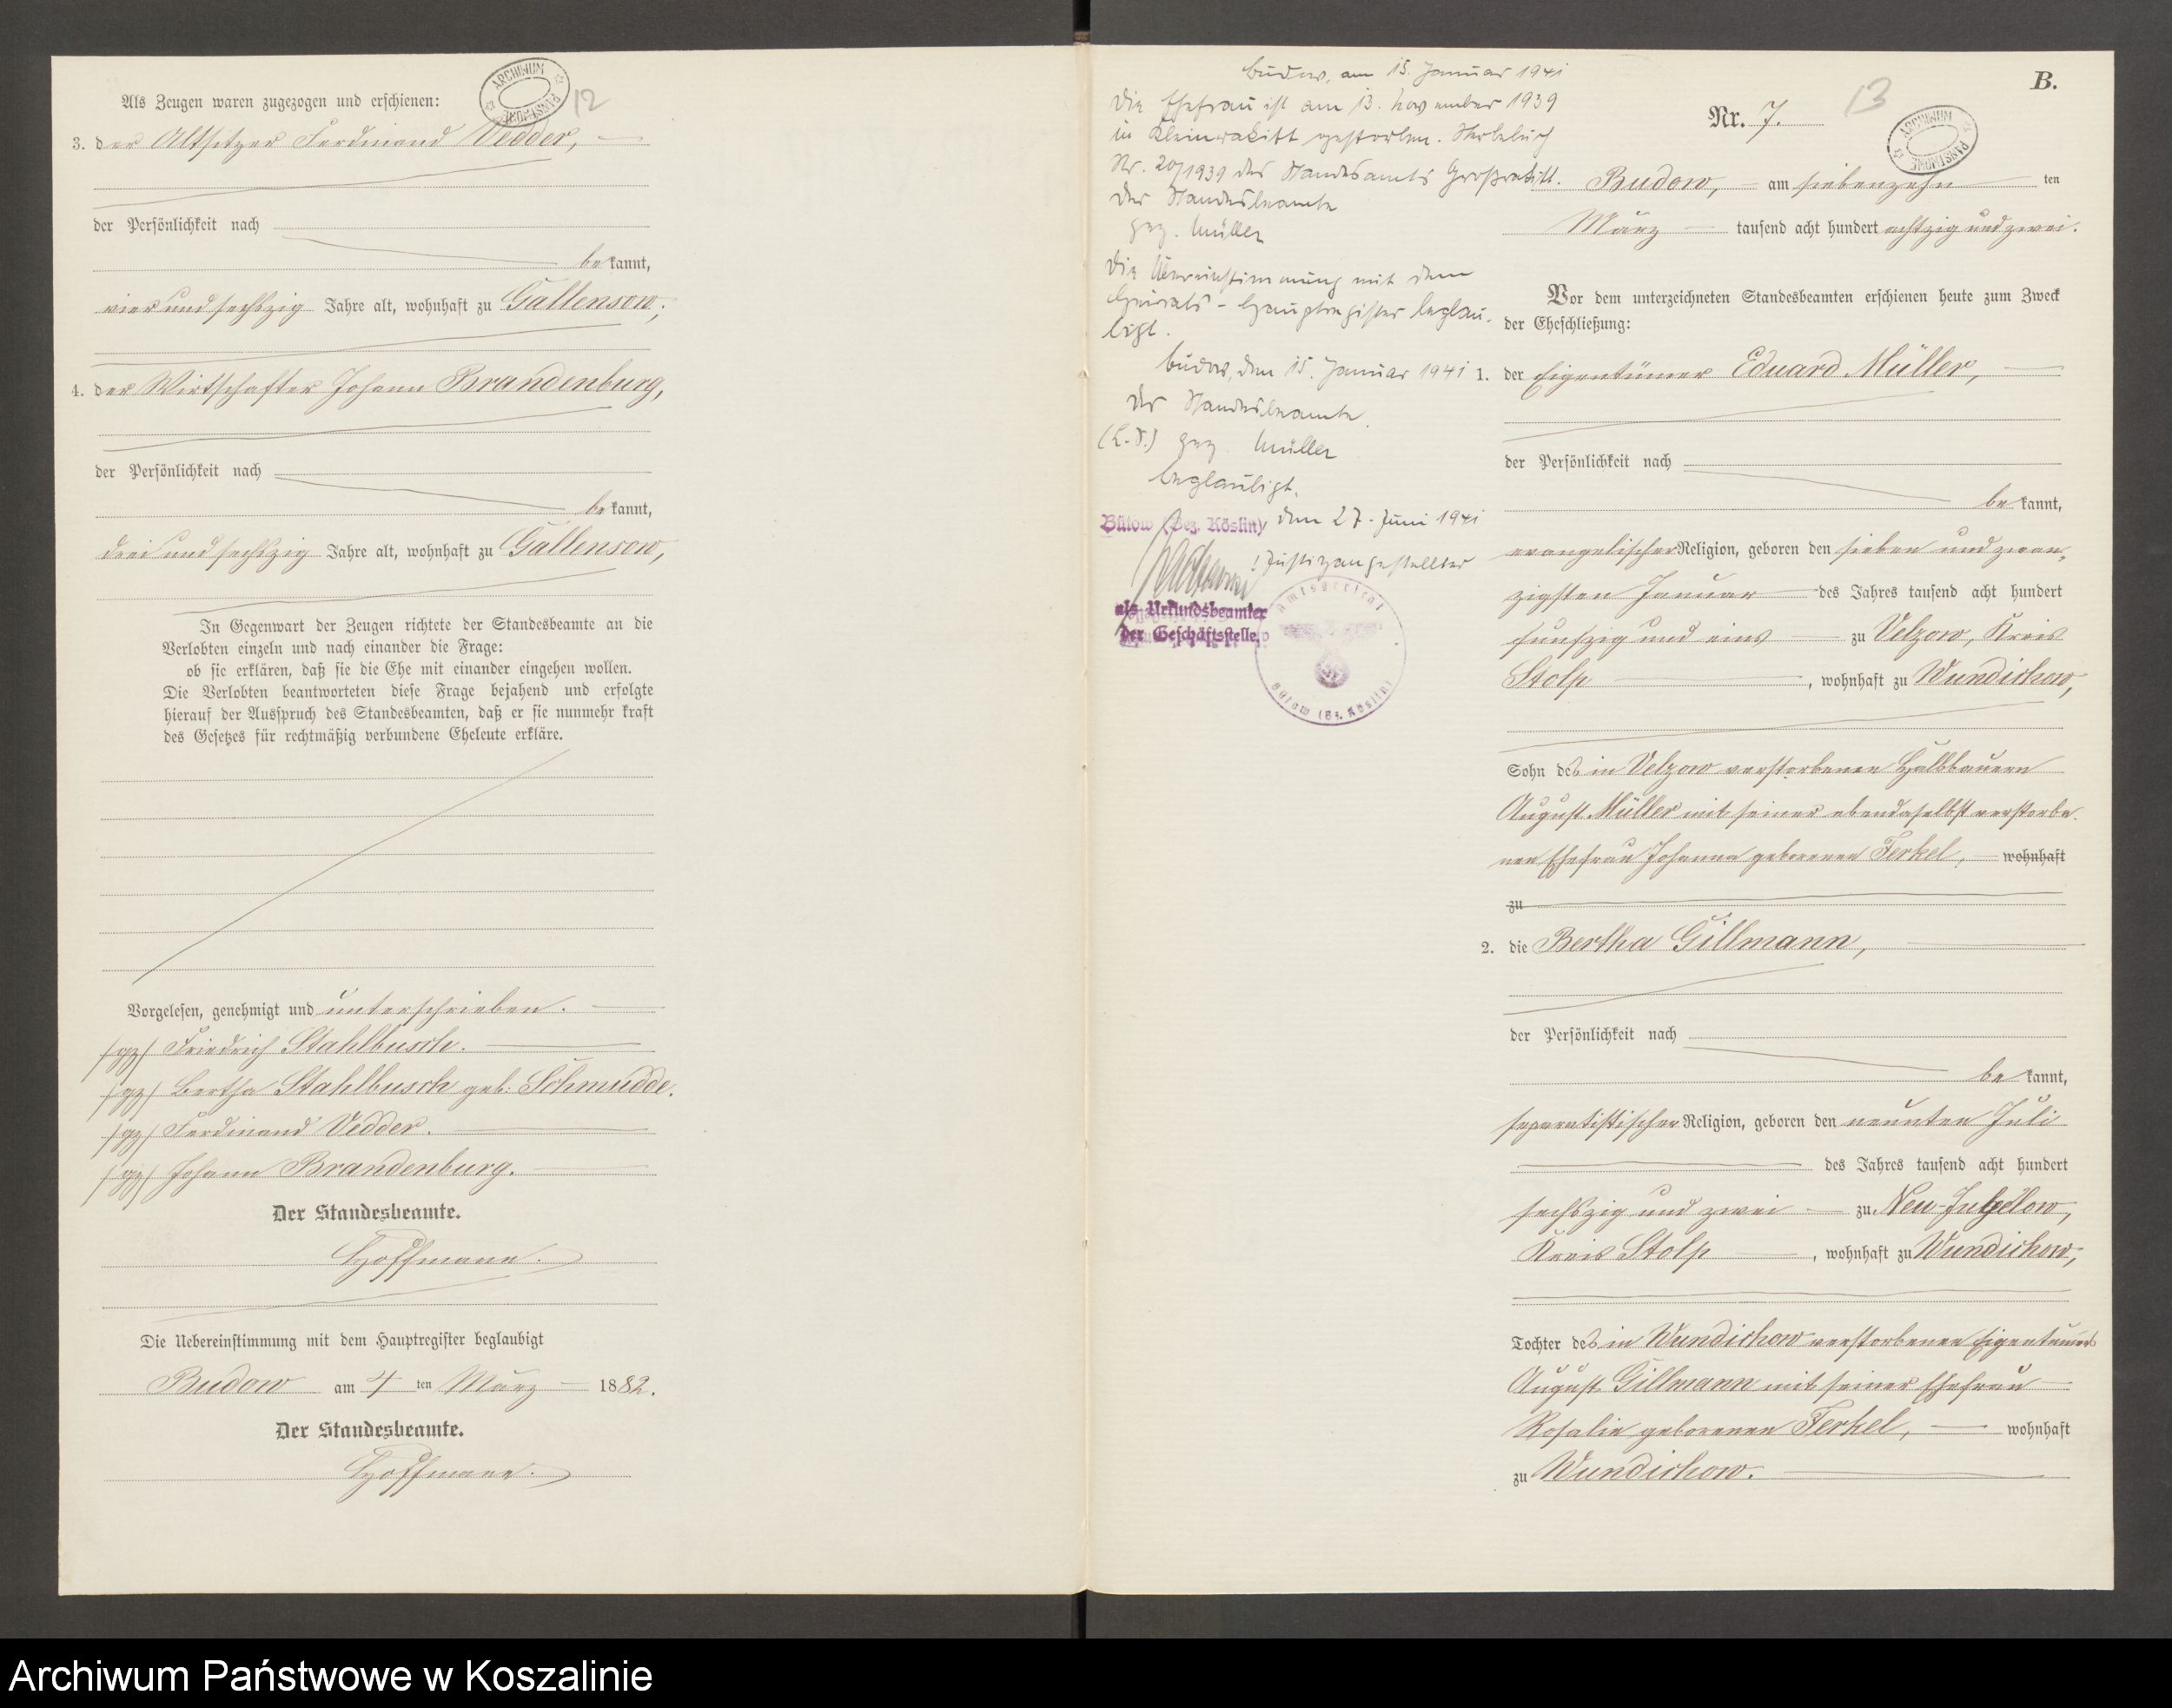 ARCHIWUM PAŃSTWOWE
12
Als Zeugen waren zugezogen und erschienen:
3. der Altsitzer Ferdinand Vedder,
der Persönlichkeit nach
be kannt,
vier und sechszig Jahre alt, wohnhaft zu Gallensow;
4. der Wirtschafter Johann Brandenburg,
der Persönlichkeit nach
be kannt,
drei und sechszig Jahre alt, wohnhaft zu Gallensow,
In Gegenwart der Zeugen richtete der Standesbeamte an die
Verlobten einzeln und nach einander die Frage:
ob sie erklären, daß sie die Ehe mit einander eingehen wollen.
Die Verlobten beantworteten diese Frage bejahend und erfolgte
hierauf der Ausspruch des Standesbeamten, daß er sie nunmehr kraft
des Gesetzes für rechtmäßig verbundene Eheleute erkläre.
Vorgelesen, genehmigt und unterschrieben.
/gz/ Friedrich Stahlbusch.
/gz/ Bertha Stahlbusch geb: Schmudde.
/gz/ Ferdinand Vedder.
/gz/ Johann Brandenburg.
Der Standesbeamte.
Hoffmann.
Die Uebereinstimmung mit dem Hauptregister beglaubigt
Budow am 4 ten März 1882.
Der Standesbeamte.
Hoffmann.
Budow, am 15. Januar 1941
Die Ehefrau ist am 13. November 1939
in Kleinrakitt gestorben. Sterbebuch
Nr. 20/1939 des Standesamts Großrakitt.
Der Standesbeamte
gez. Müller
Die Übereinstimmung mit dem
Heirats-Hauptregister beglau-
bigt.
Budow, den 15. Januar 1941
Der Standesbeamte.
(L.S.) gez. Müller
beglaubigt.
Bütow (Bez. Köslin) den 27. Juni 1941
Justizangestellter
als Urkundsbeamter
der Geschäftsstelle
Amtsgericht
Bütow (Bz. Köslin)
B.
13
Nr. 7.
ARCHIWUM PAŃSTWOWE
Budow, am siebenzehn ten
März tausend acht hundert achtzig und zwei.
Vor dem unterzeichneten Standesbeamten erschienen heute zum Zweck
der Eheschließung:
1. der Eigentümer Eduard Müller,
der Persönlichkeit nach
be kannt,
evangelischer Religion, geboren den sieben und zwan-
zigsten Januar des Jahres tausend acht hundert
funfzig und eins zu Velzow, Kreis
Stolp, wohnhaft zu Wundichow,
Sohn des in Velzow verstorbenen Halbbauern
August Müller mit seiner ebendaselbst verstorbe-
nen Ehefrau Johanna geborenen Ferkel, wohnhaft
zu
2. die Bertha Gillmann,
der Persönlichkeit nach
be kannt,
separatistischer Religion, geboren den neunten Juli
des Jahres tausend acht hundert
sechszig und zwei zu Neu-Jugelow,
Kreis Stolp, wohnhaft zu Wundichow,
Tochter des in Wundichow verstorbenen Eigentümers
August Gillmann mit seiner Ehefrau
Rosalie geborenen Ferkel, wohnhaft
zu Wundichow.
Archiwum Państwowe w Koszalinie